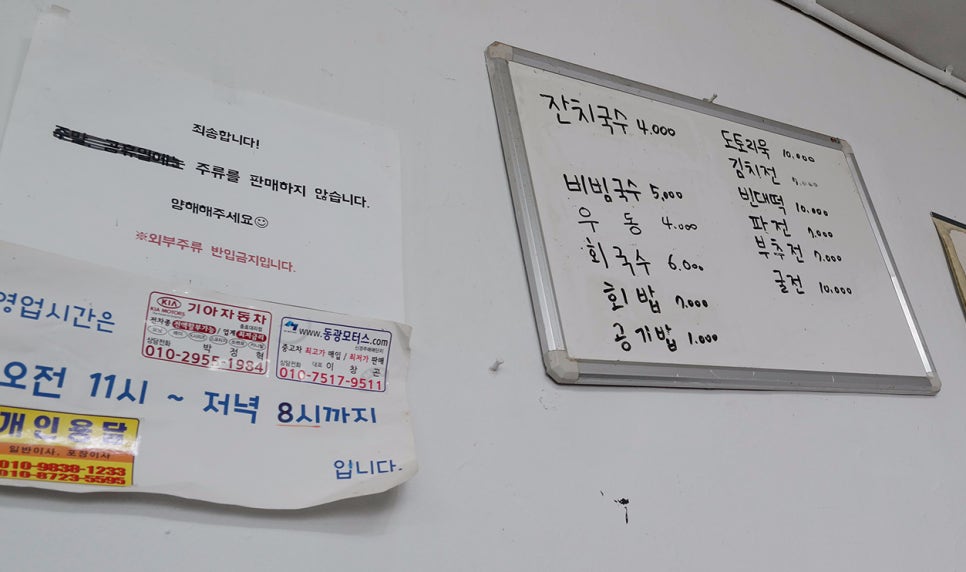 죄송합니다!
주류를 판매하지 않습니다.
양해해주세요
※외부주류 반입금지입니다.
영업시간은
오전 11시 ~ 저녁 8시까지
입니다.
KIA
KIA MOTORS
기아자동차
전차종 신차할부가능 / 업계 최저금리
상담전화 박정혁
010-2955-1984
www.동광모터스.com
중고차 최고가 매입 / 최저가 판매
상담전화 대표 이창곤
010-7517-9511
개인용달
일반이사, 포장이사
010-9838-1233
010-8723-5595
잔치국수 4.000
비빔국수 5,000
우동 4.000
회국수 6.000
회밥 7.000
공기밥 1.000
도토리묵 10.000
김치전
빈대떡 10.000
파전 7.000
부추전 7.000
굴전 10.000